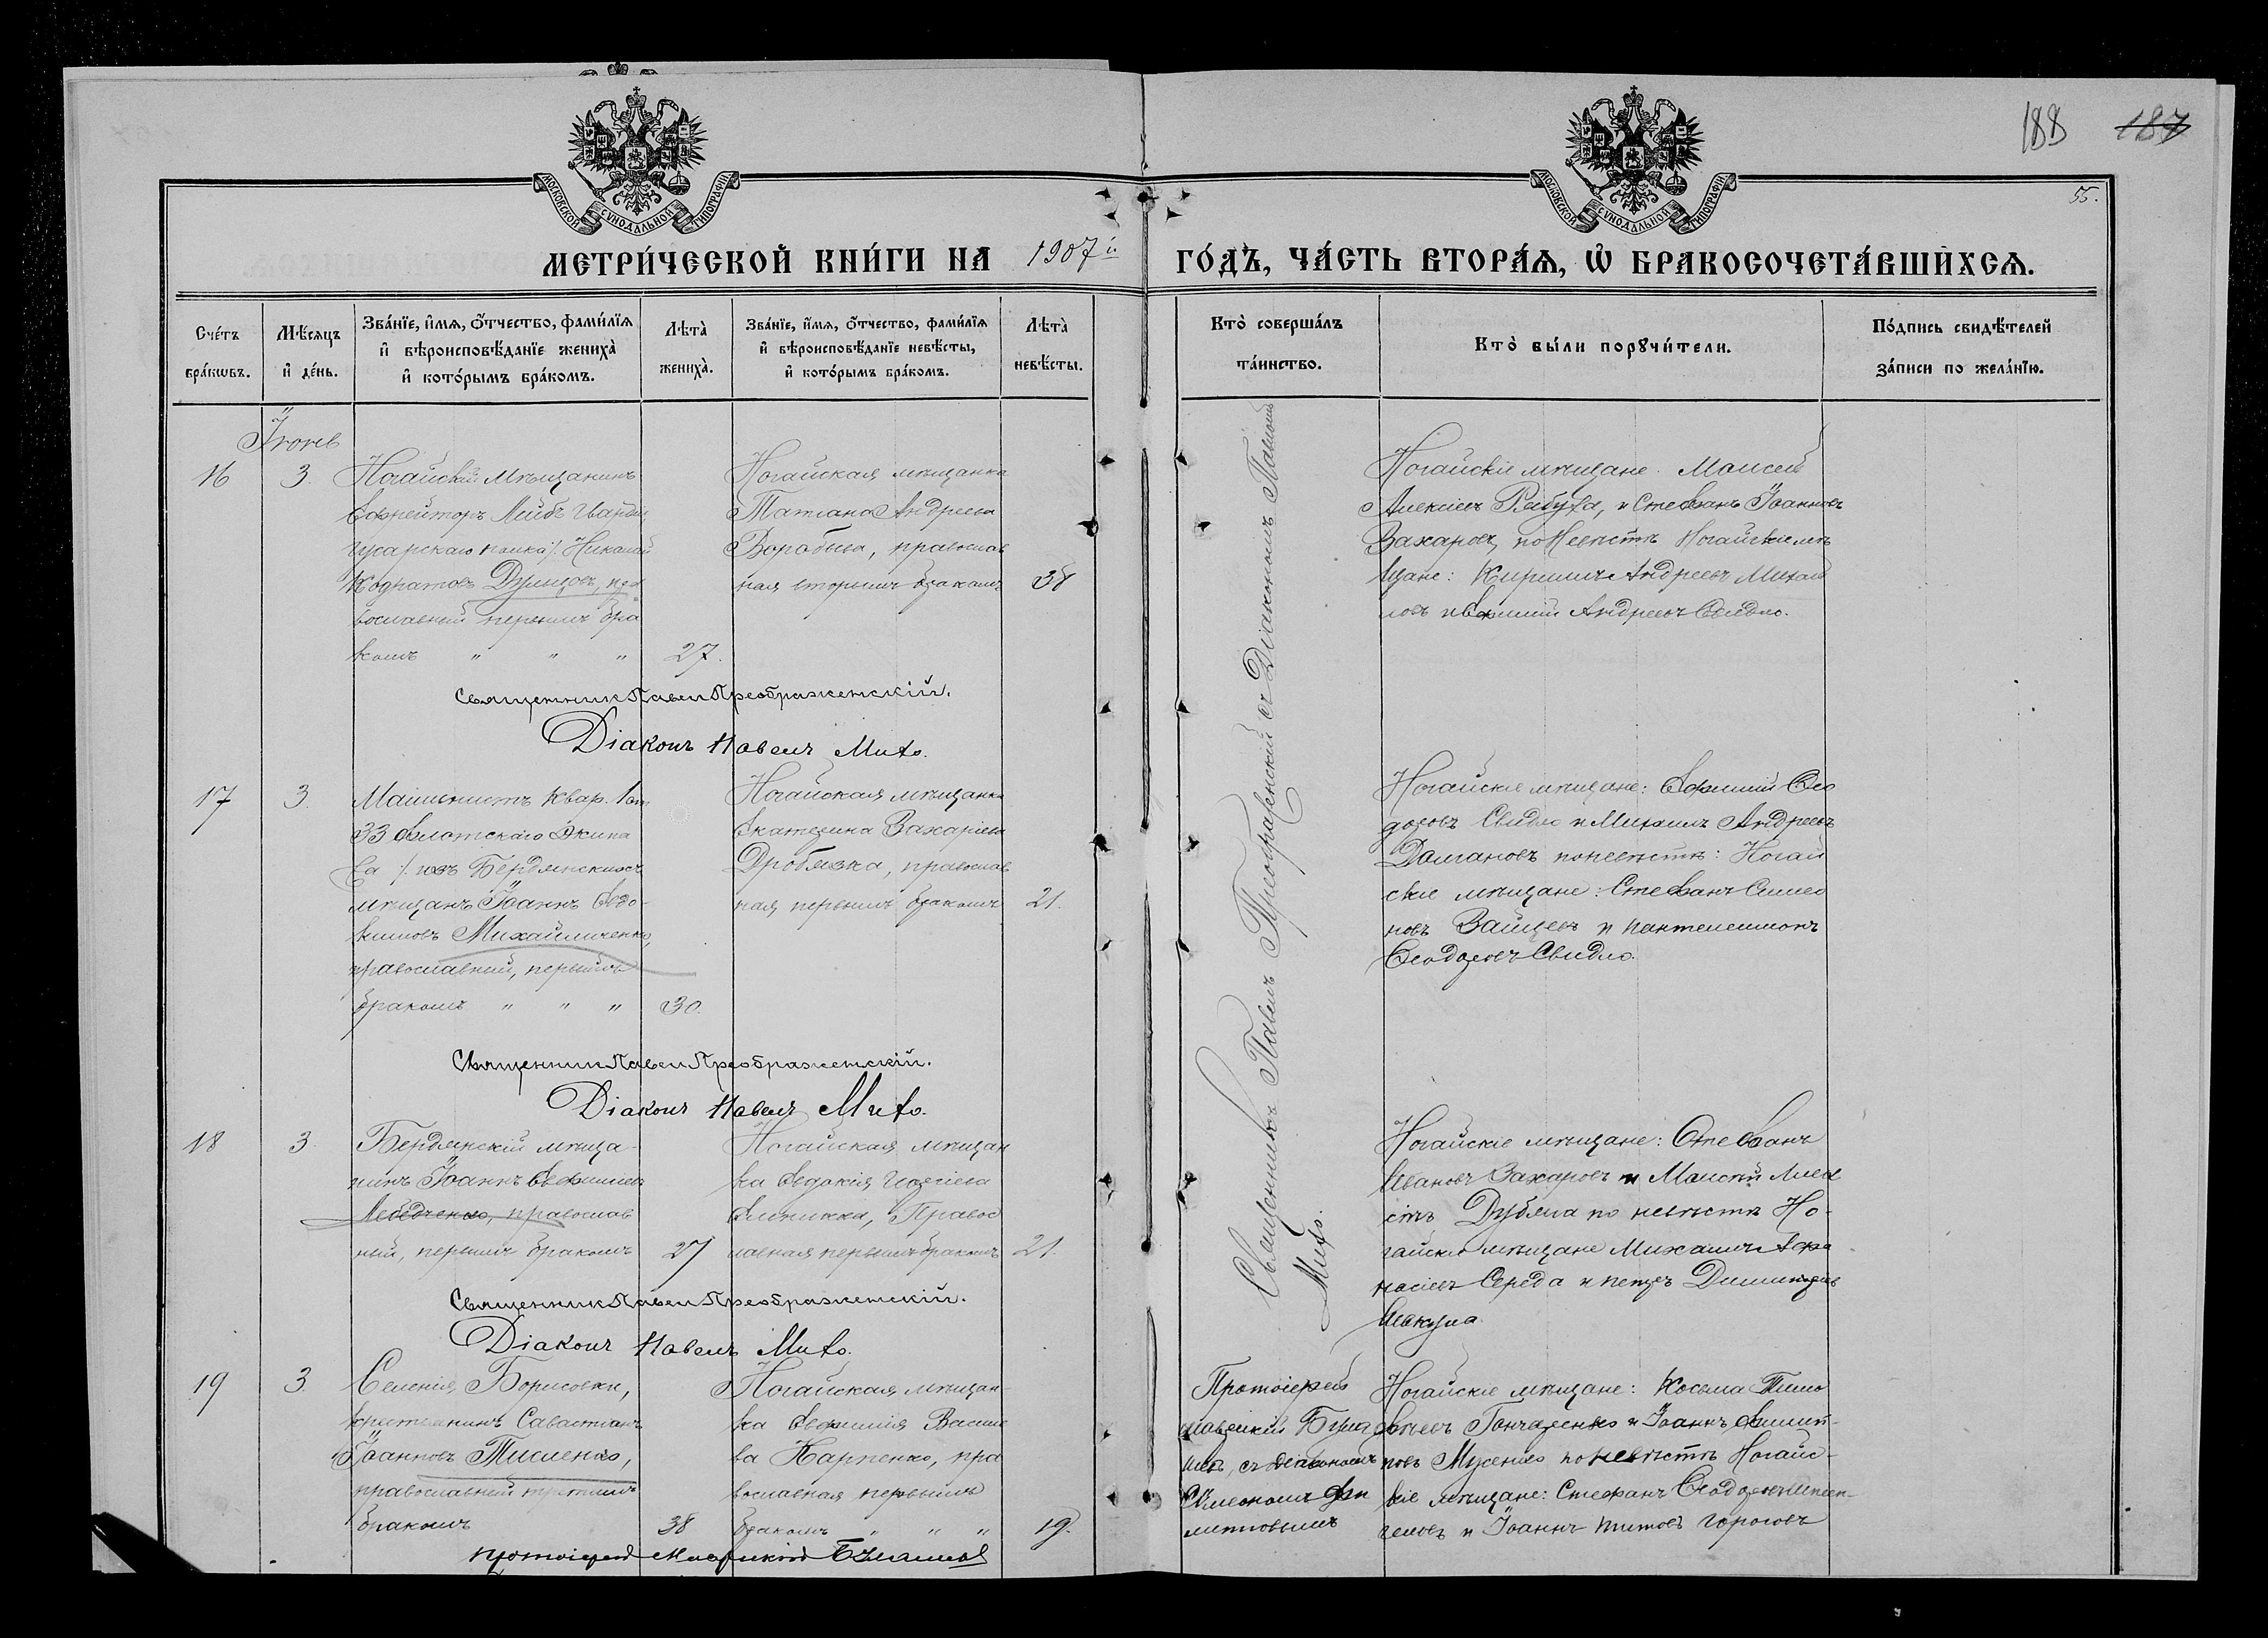 188 187
55.
МОСКОВСКОЙ СУНОДАЛЬНОЙ ТИПОГРАФІИ
МОСКОВСКОЙ СУНОДАЛЬНОЙ ТИПОГРАФІИ
МЕТРИ́ЧЕСКОЙ КНИ́ГИ НА 1907й ГО́ДЪ, ЧА́СТЬ ВТОРА́Ѧ, Ѽ БРАКОСОЧЕТА́ВШИХСѦ.
Сче́тъ
бра́кѡвъ.
Мѣ́сѧцъ
и҆ де́нь.
Зва́нїе, и҆́мѧ, ѻ҆́тчество, фами́лїѧ
и҆ вѣроисповѣ́данїе жениха̀
и҆ кото́рымъ бра́комъ.
Лѣта̀
жениха̀.
Зва́нїе, и҆́мѧ, ѻ҆́тчество, фами́лїѧ
и҆ вѣроисповѣ́данїе невѣ́сты,
и҆ кото́рымъ бра́комъ.
Лѣта̀
невѣ́сты.
Кто̀ соверша́лъ
та́инство.
Кто̀ бы́ли порꙋчи́тели.
По́дпись свидѣ́телей
за́писи по жела́нїю.
Іюнь
16
3.
Ногайскій мѣщанинъ
Ефрейторъ Лейбъ Гвардіи
Гусарскаго полка Николай
Кодратовъ
вославный первымъ бра
комъ " " "
27.
Ногайская мѣщанка
Татіана Андреева
Воробьева, православ
ная вторымъ бракомъ
38
Ногайскіе мѣщане. Моисей
Алексіевъ и Стефанъ Іоанновъ
Захаровъ, по невѣстѣ Ногайскіе мѣ
щане: Кириллъ Андреевъ Михай
ловъ и Евфимій Андреевъ Свидло.
Священник Павел Преображенскій.
Діаконъ Павелъ Михо.
17
3.
Машинистъ Квар. 1 ст.
33 флотскаго Экипа
жа изъ Бердянскихъ
мѣщанъ Іоаннъ Евдо-
кимовъ Михайличенко,
православный, первымъ
бракомъ " " "
30.
Ногайская мѣщанка
Екатерина Захаріева
Дробязка, православ
ная первымъ бракомъ
21.
Ногайскіе мѣщане: Евфимій Ѳео
досовъ Свидло и Михаилъ Андреевъ
Долгановъ по невѣстѣ: Ногай
скіе мѣщане: Стефанъ Симео
новъ Зайцевъ и Пантелеимонъ
Ѳеодосовъ Свидло.
Священник Павел Преображенскій.
Діаконъ Павелъ Михо.
18
3.
Бердянскій мѣща-
нинъ Іоаннъ Евфиміевъ
Лебедченко, православ
ный, первымъ бракомъ
27
Ногайская мѣщан
ка Евдокія
Правос
лавная первымъ бракомъ
21.
Ногайскіе мѣщане: Стефанъ
Ивановъ Захаровъ и Моисей Алек
сѣевъ по невѣстѣ Но-
гайскіе мѣщане Михаилъ Афа
насіевъ Середа и Петръ
Священникъ Павелъ Преображенскій съ Діакономъ Павломъ
Михо.
Священник Павел Преображенскій.
Діаконъ Павелъ Михо.
19
3.
Селенія Борисовки,
крестьянинъ Савастіанъ
Іоанновъ Тисленко,
православный третьимъ
бракомъ
38
Ногайская мѣщан-
ка Евфимія Васил
ва Карпенко, пра
вославная первымъ
бракомъ " " "
19.
Протоіерей
съ діакономъ
Симеономъ
Ногайскіе мѣщане: Косьма Тимо
ѳеевъ Гончаренко и Іоаннъ Филип-
повъ Мусенко по невѣстѣ Ногайс-
кіе мѣщане: Стефанъ Ѳеодосовъ
и Іоаннъ Титовъ Гороховъ
протоіерей